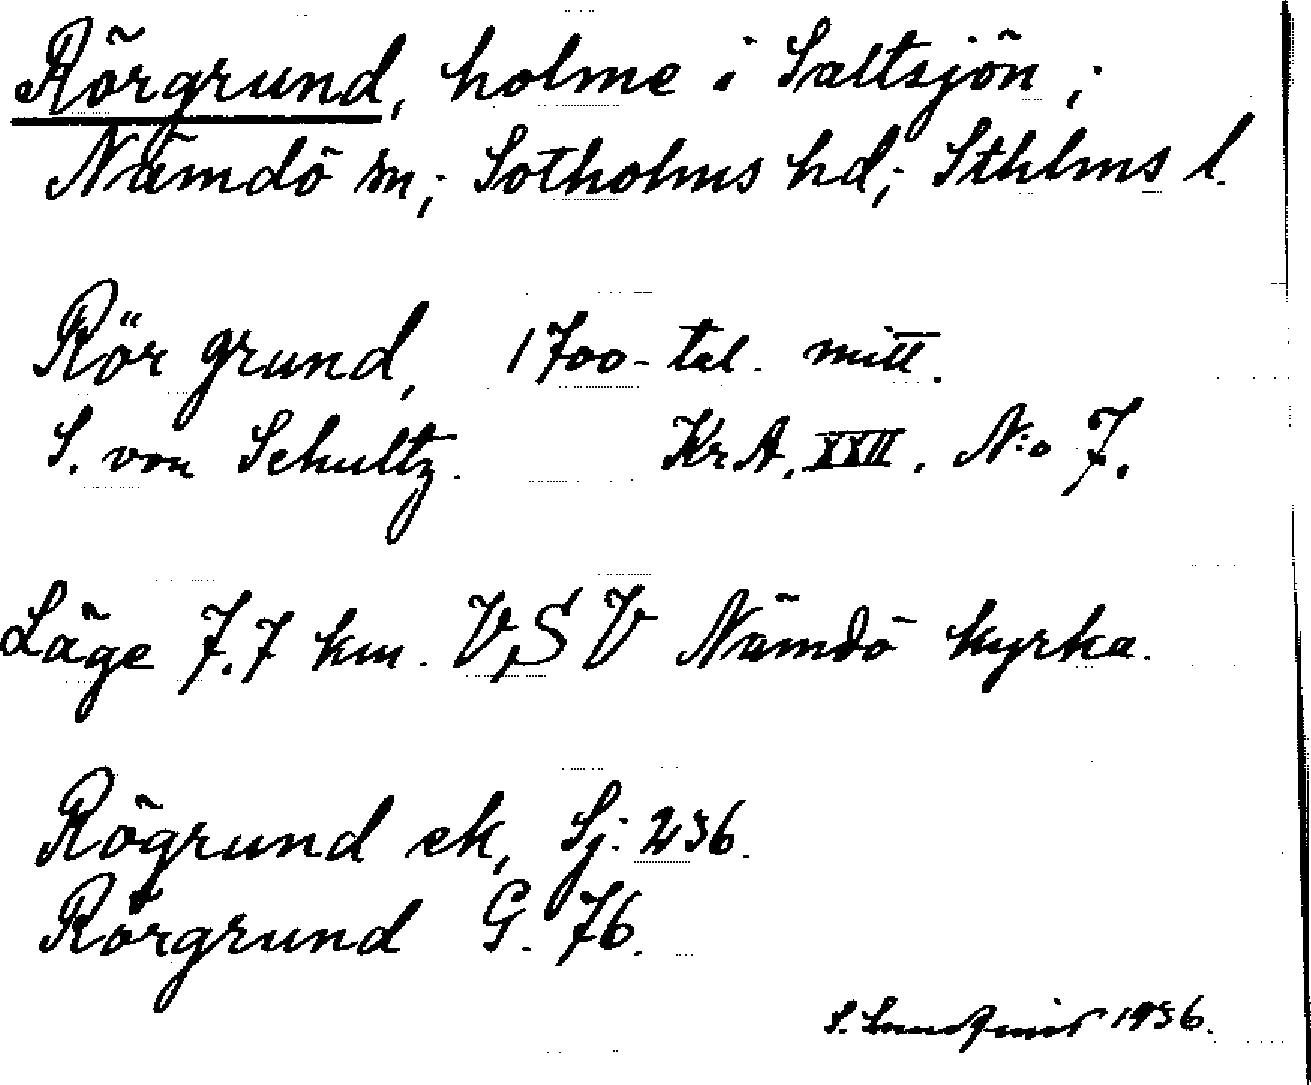 Rörgrund, holme i Saltsjön;
Nämdö sn; Sotholms hd; Sthlms l.
Rör grund, 1700-tal. mitt.
S. von Schultz. Kr.A. XXII. N:o 7.
Läge 7.7 km. VSV Nämdö kyrka.
Rögrund ek, Sj: 236.
Rörgrund G. 76.
S. Lundqvist 1936.